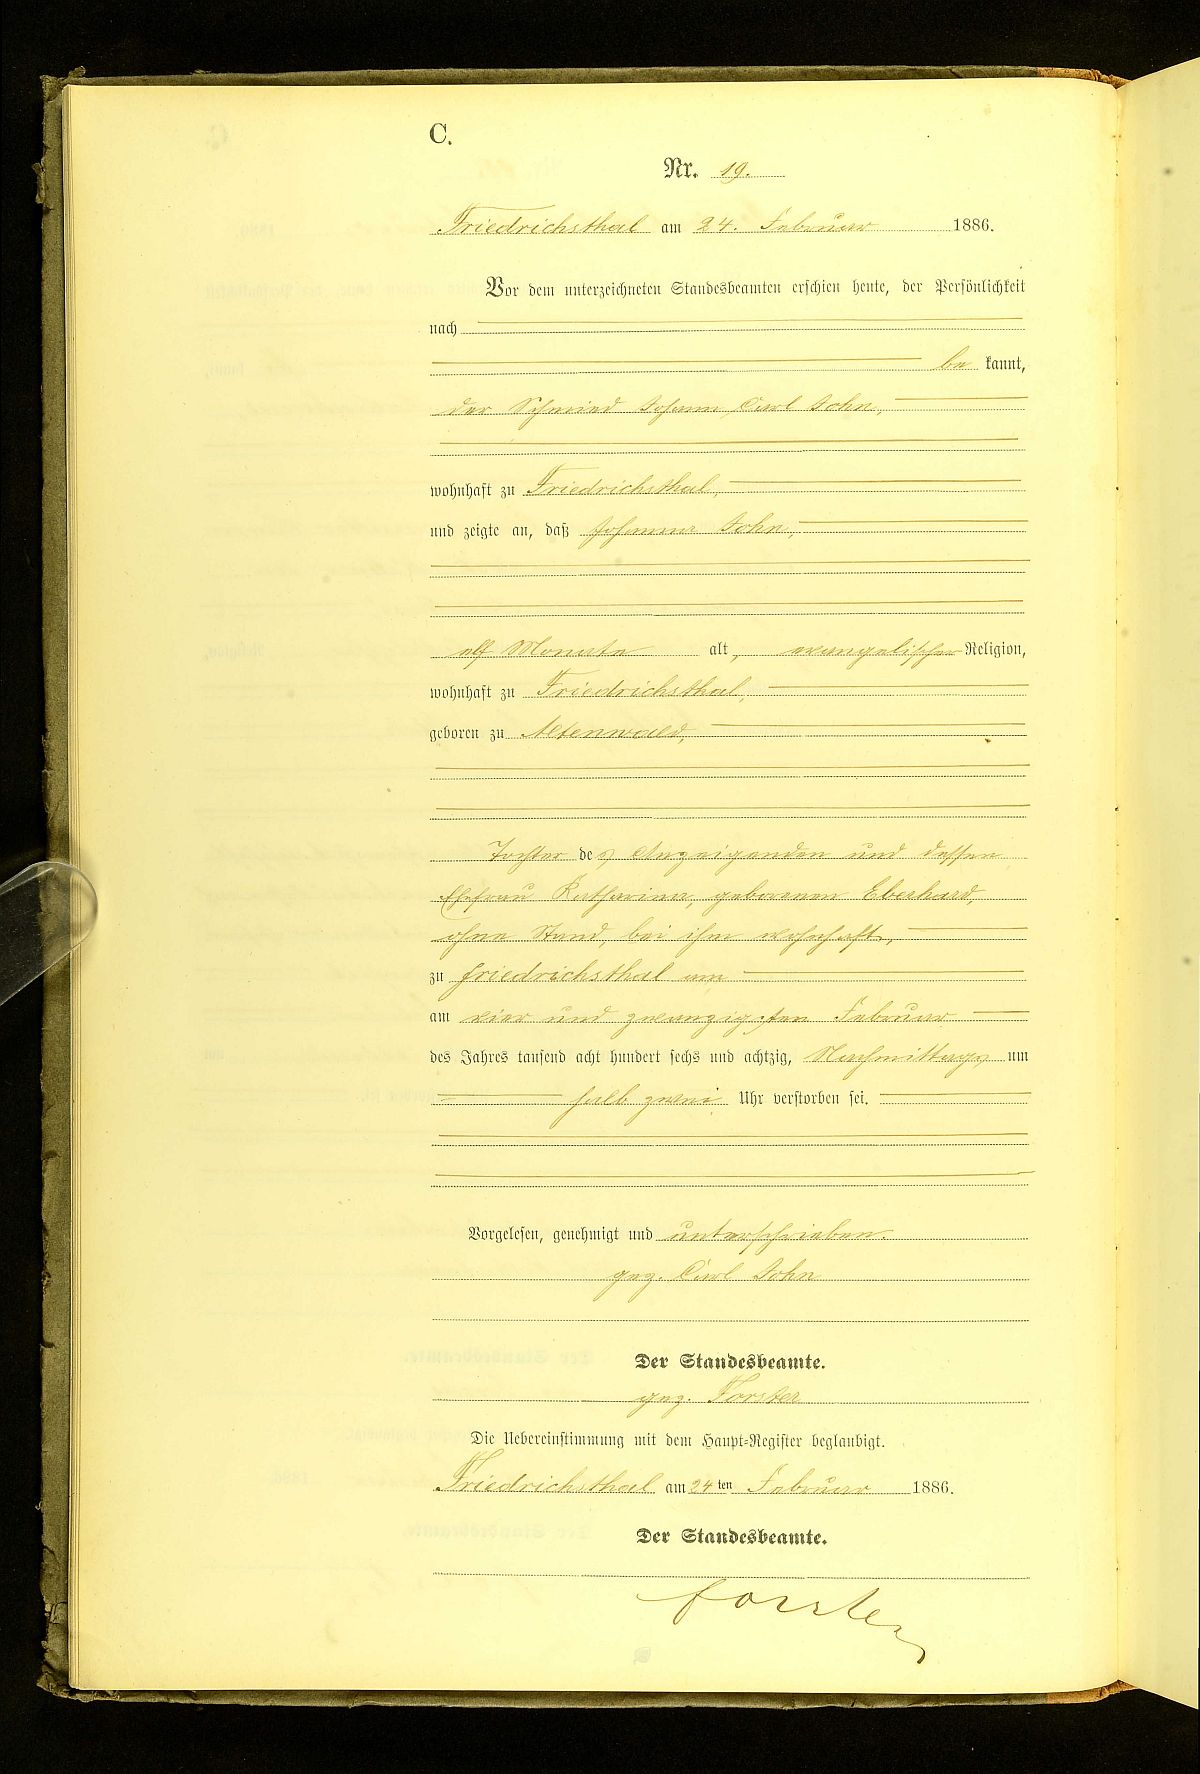 C.
Nr. 19.
Friedrichsthal am 24. Februar 1886.
Vor dem unterzeichneten Standesbeamten erschien heute, der Persönlichkeit
nach
be kannt,
der Schmied Johann Carl John,
wohnhaft zu Friedrichsthal,
und zeigte an, daß Johanna John,
elf Monate alt, evangelischer Religion,
wohnhaft zu Friedrichsthal,
geboren zu Altenwald,
Tochter des Anzeigenden und dessen
Ehefrau Katharina, geborenen Eberhard,
ohne Stand, bei ihm wohnhaft,
zu Friedrichsthal am
am vier und zwanzigsten Februar
des Jahres tausend acht hundert sechs und achtzig, Nachmittags um
halb zwei Uhr verstorben sei.
Vorgelesen, genehmigt und unterschrieben.
gez. Carl John
Der Standesbeamte.
gez. Forster
Die Uebereinstimmung mit dem Haupt-Register beglaubigt.
Friedrichsthal am 24ten Februar 1886.
Der Standesbeamte.
Forster